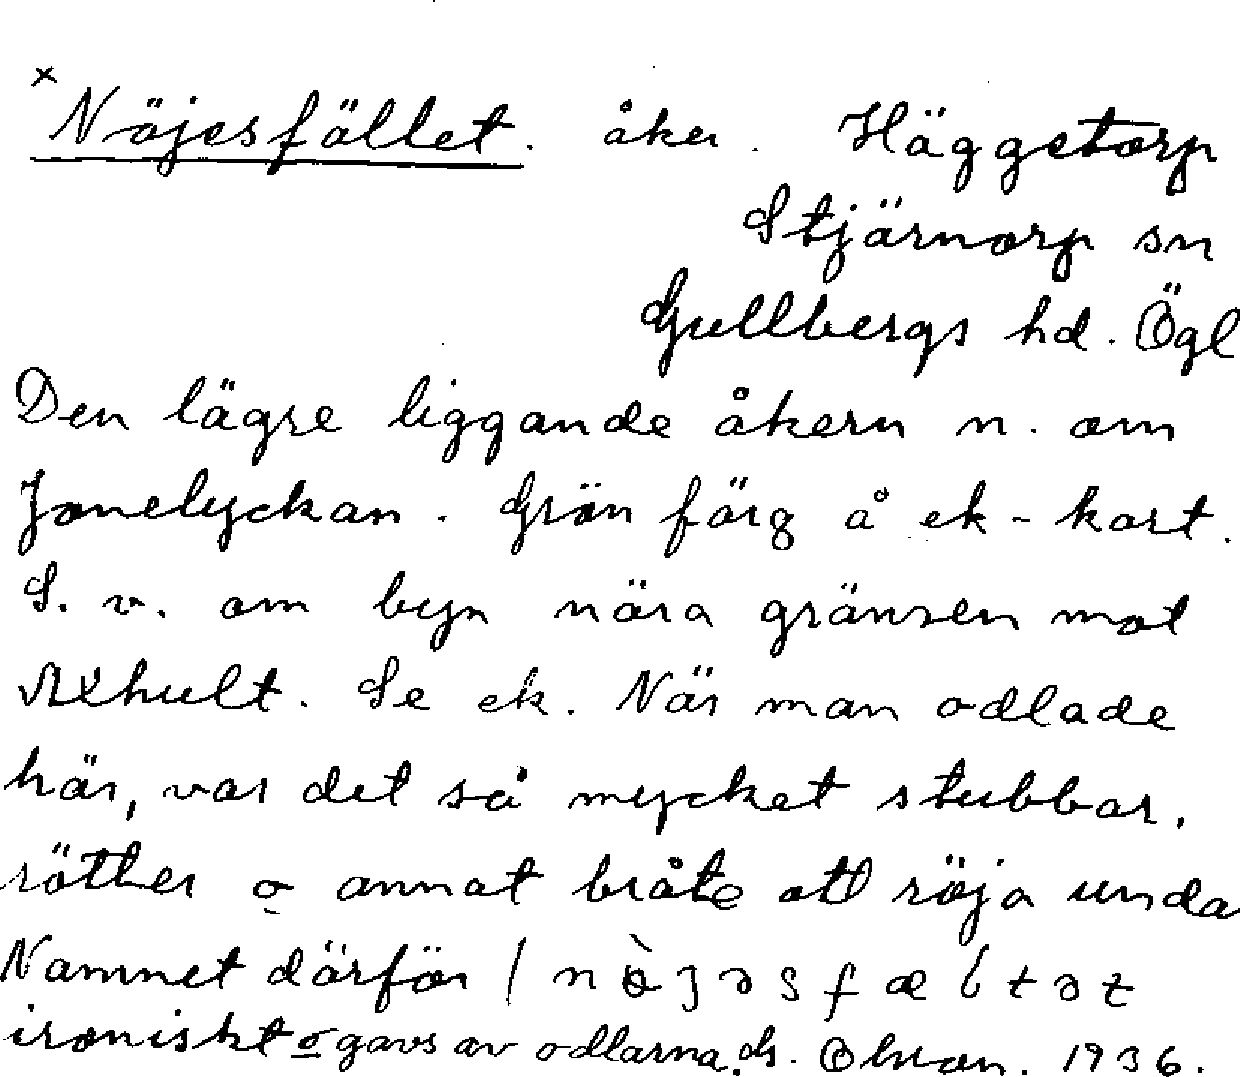 × Nöjesfället. åker. Häggetorp
Stjärnorp sn
Gullbergs hd. Ögl
Den lägre liggande åkern n. om
Jonelyckan. Grön färg å ek-kart.
S. v. om byn nära gränsen mot
hult. Se ek. När man odlade
här, var det så mycket stubbar,
rötter o annat bråte att röja unda
Namnet därför /
ironiskt o gavs av odlarna. 1936.